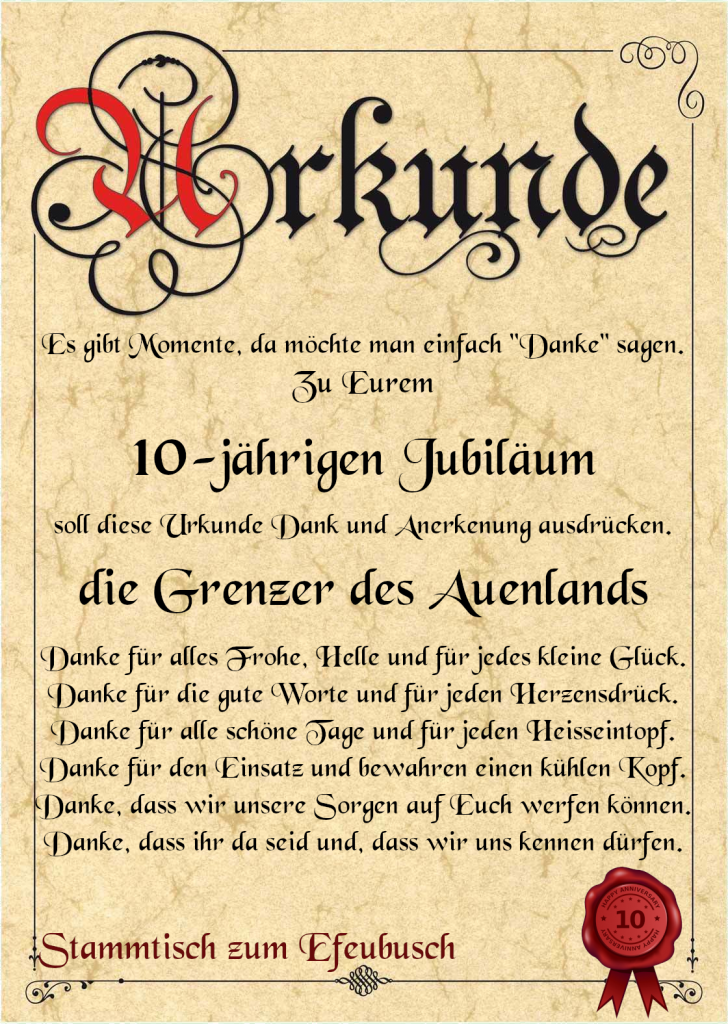 Urkunde
Es gibt Momente, da möchte man einfach "Danke" sagen.
Zu Eurem
10-jährigen Jubiläum
soll diese Urkunde Dank und Anerkenung ausdrücken.
die Grenzer des Auenlands
Danke für alles Frohe, Helle und für jedes kleine Glück.
Danke für die gute Worte und für jeden Herzensdrück.
Danke für alle schöne Tage und für jeden Heisseintopf.
Danke für den Einsatz und bewahren einen kühlen Kopf.
Danke, dass wir unsere Sorgen auf Euch werfen können.
Danke, dass ihr da seid und, dass wir uns kennen dürfen.
HAPPY ANNIVERSARY
10
HAPPY ANNIVERSARY
Stammtisch zum Efeubusch